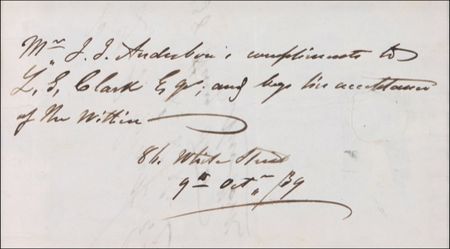 Mr J. J. Anderson's compliments to
L. G. Clark Esqr, and begs his acceptance
of the Within
86. White Street
9th Octr /39